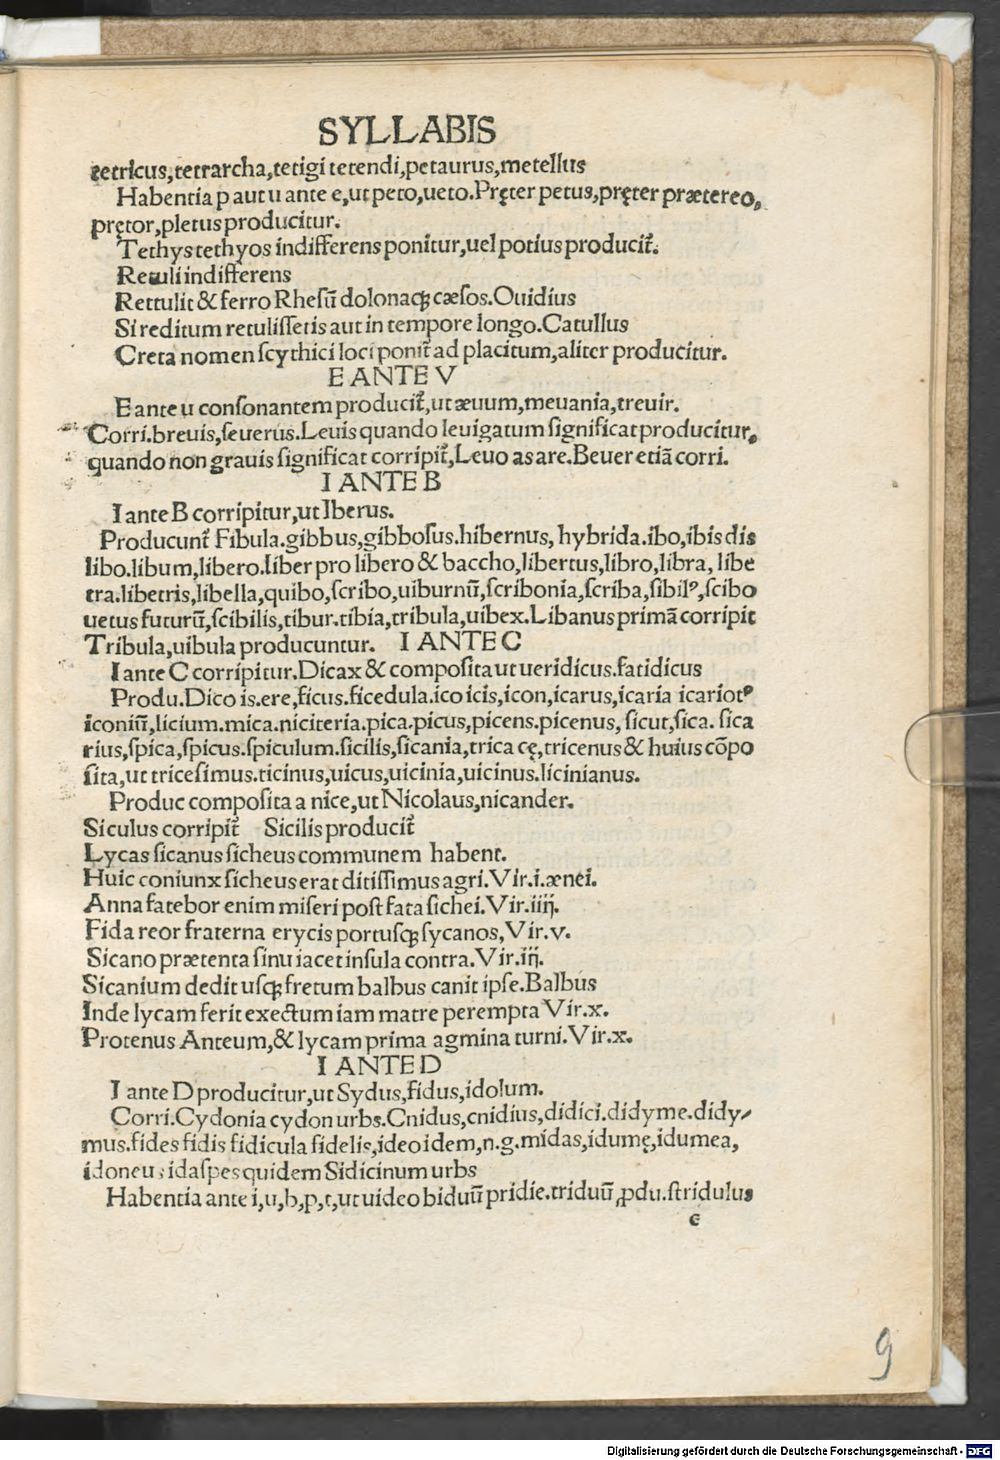 SYLLABIS
tetricus,tetrarcha,tetigi tetendi,petaurus,metellus
Habentia p aut u ante e,ut peto,ueto.Pręter petus,pręter prætereo,
prętor,pletus producitur.
Tethys tethyos indifferens ponitur,uel potius producit᷑.
Retuli indifferens
Rettulit & ferro Rhesũ dolonaqꝫ cæsos.Ouidius
Si reditum retulissetis aut in tempore longo.Catullus
Creta nomen scythici loci ponit᷑ ad placitum,aliter producitur.
E ANTE V
E ante u consonantem producit᷑,ut æuum,meuania,treuir.
Corri.breuis,seuerus.Leuis quando leuigatum significat producitur,
quando non grauis significat corripit᷑,Leuo as are.Beuer etiã corri.
I ANTE B
I ante B corripitur,ut Iberus.
Producunt᷑ Fibula.gibbus,gibbosus.hibernus, hybrida.ibo,ibis dis
libo.libum,libero.liber pro libero & baccho,libertus,libro,libra, libe
tra.libetris,libella,quibo,scribo,uiburnũ,scribonia,scriba,sibilꝰ,scibo
uetus futurũ,scibilis,tibur.tibia,tribula,uibex.Libanus primã corripit
Tribula,uibula producuntur. I ANTE C
I ante C corripitur.Dicax & composita ut ueridicus.fatidicus
Produ.Dico is.ere,ficus.ficedula.ico icis,icon,icarus,icaria icariotꝰ
iconiũ,licium.mica.niciteria.pica.picus,picens.picenus, sicut,sica. sica
rius,spica,spicus.spiculum.sicilis,sicania,trica cę,tricenus & huius cõpo
sita,ut tricesimus.ticinus,uicus,uicinia,uicinus.licinianus.
Produc composita a nice,ut Nicolaus,nicander.
Siculus corripit᷑ Sicilis producit᷑
Lycas sicanus sicheus communem habent.
Huic coniunx sicheus erat ditissimus agri.Vir.i.ænei.
Anna fatebor enim miseri post fata sichei.Vir.iiij.
Fida reor fraterna erycis portusqꝫ sycanos,Vir.v.
Sicano prætenta sinu iacet insula contra.Vir.iij.
Sicanium dedit usqꝫ fretum balbus canit ipse.Balbus
Inde lycam ferit exectum iam matre perempta Vir.x.
Protenus Anteum,& lycam prima agmina turni.Vir.x.
I ANTE D
I ante D producitur,ut Sydus,fidus,idolum.
Corri.Cydonia cydon urbs.Cnidus,cnidius,didici.didyme.didy-
mus.fides fidis fidicula fidelis,ideo idem,n.g.midas,idumę,idumea,
idoneus idaspes quidem Sidicinum urbs
Habentia ante i,u,b,p,t,ut uideo biduũ pridie.triduũ,ꝓdu.stridulus
e
9
Digitalisierung gefördert durch die Deutsche Forschungsgemeinschaft - DFG